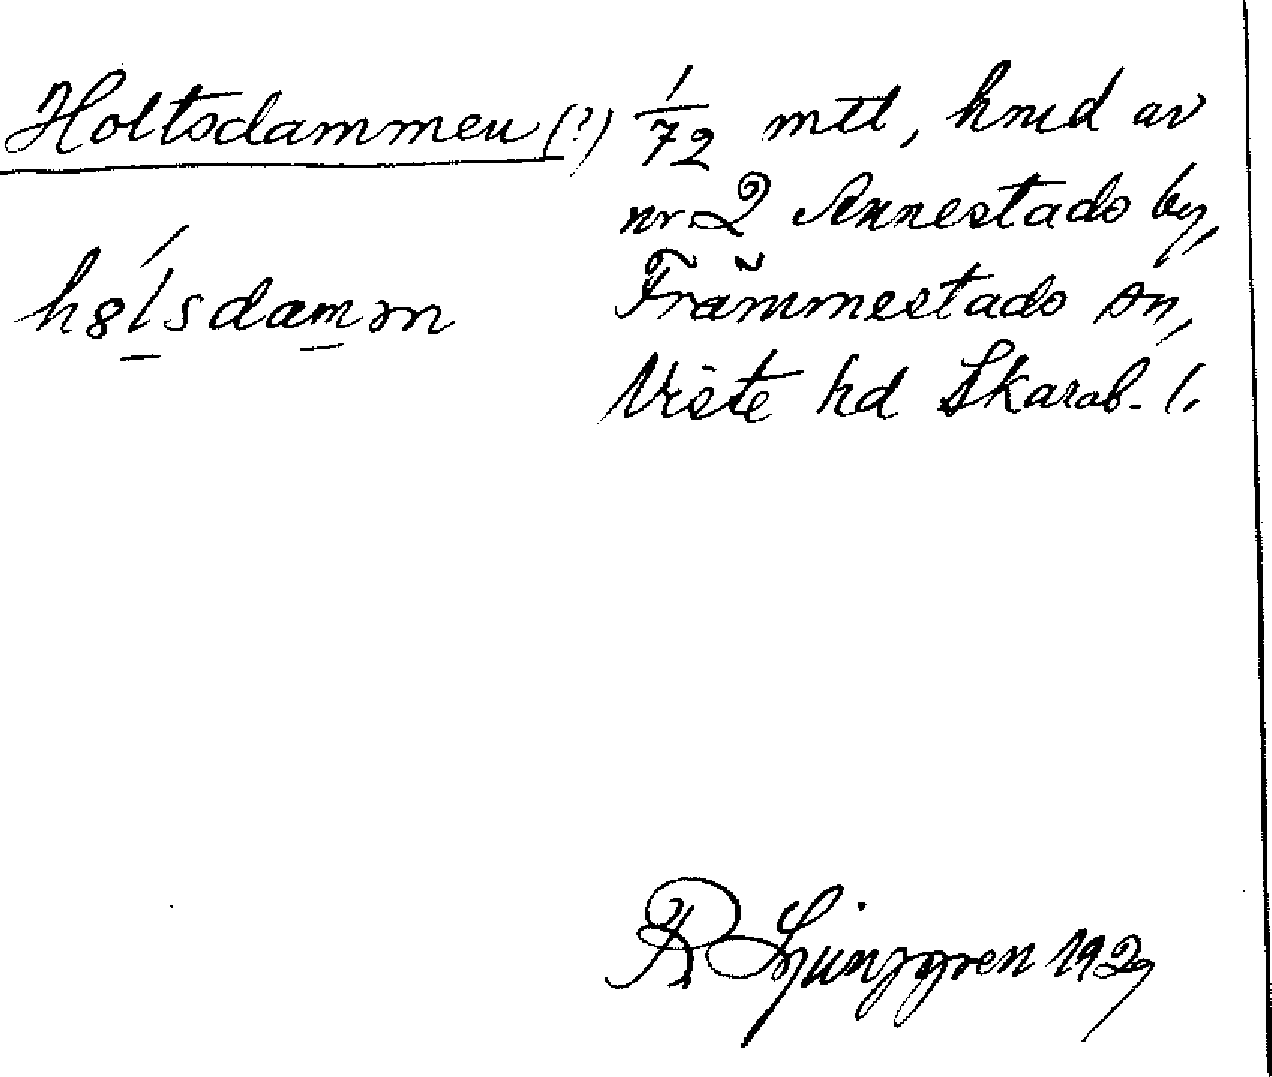 Holtsdammen (?)
hɞlsdamɔn
1/72 mtl, hmd av
nr. 2 Annestads by,
Främmestads sn,
Viste hd Skarab. l.
R Ljunggren 1929